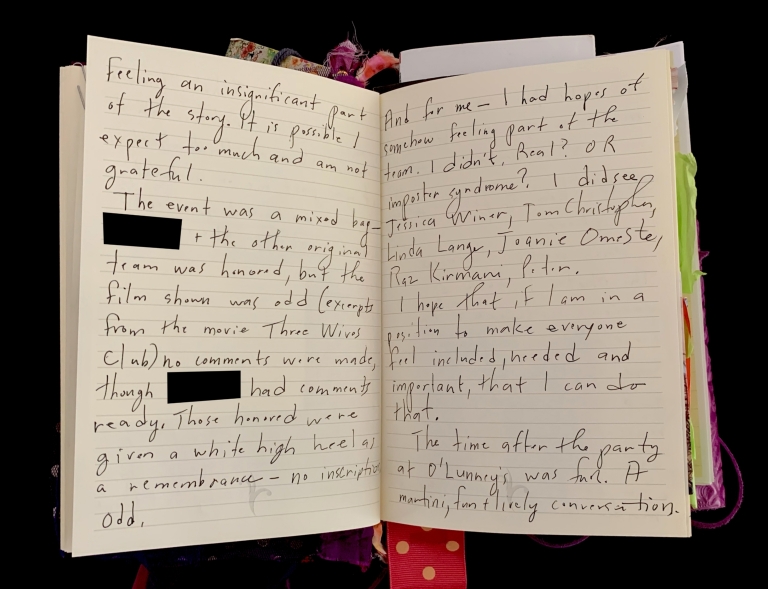 Feeling an insignificant part
of the story. It is possible I
expect too much and am not
grateful.
The event was a mixed bag—
+ the other original
team was honored, but the
film shown was odd (excerpts
from the movie Three Wives
Club) no comments were made,
though had comments
ready. Those honored were
given a white high heel as
a remembrance – no inscription
Odd.
And for me – I had hopes of
somehow feeling part of the
team. I didn't. Real? OR
imposter syndrome? I did see
Jessica Winer, Tom Christopher,
Linda Lange, Joanie Omeste,
Raz Kirmani, Peter.
I hope that, if I am in a
position to make everyone
feel included, needed and
important, that I can do
that.
The time after the party
at O'Lunney's was fun. A
martini, fun + lively conversation.